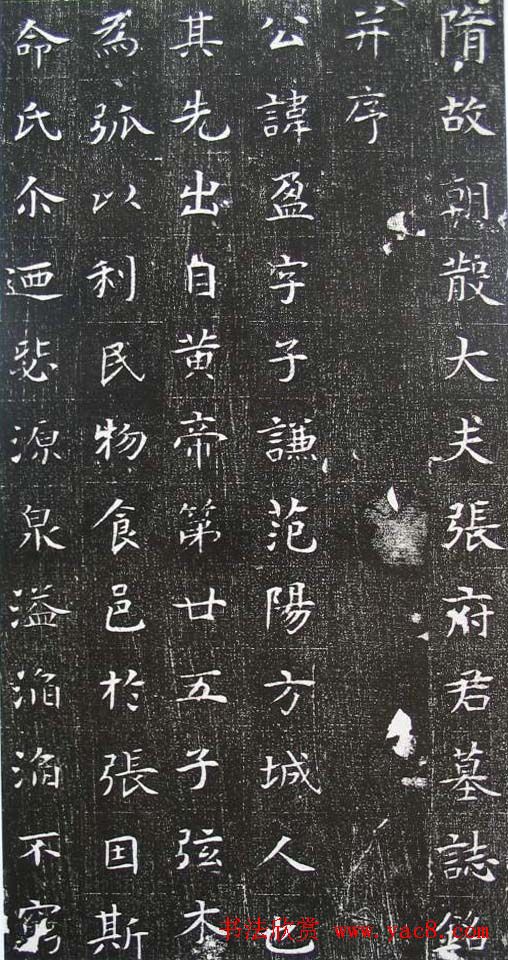 隋故朝散大夫張府君墓誌銘
并序
公諱盈字子謙范陽方城人也
其先出自黄帝第廿五子弦木
為弧以利民物食邑於張因斯
命氏尒迺毖源泉溢滔滔不窮
书法欣赏 www.yac8.com